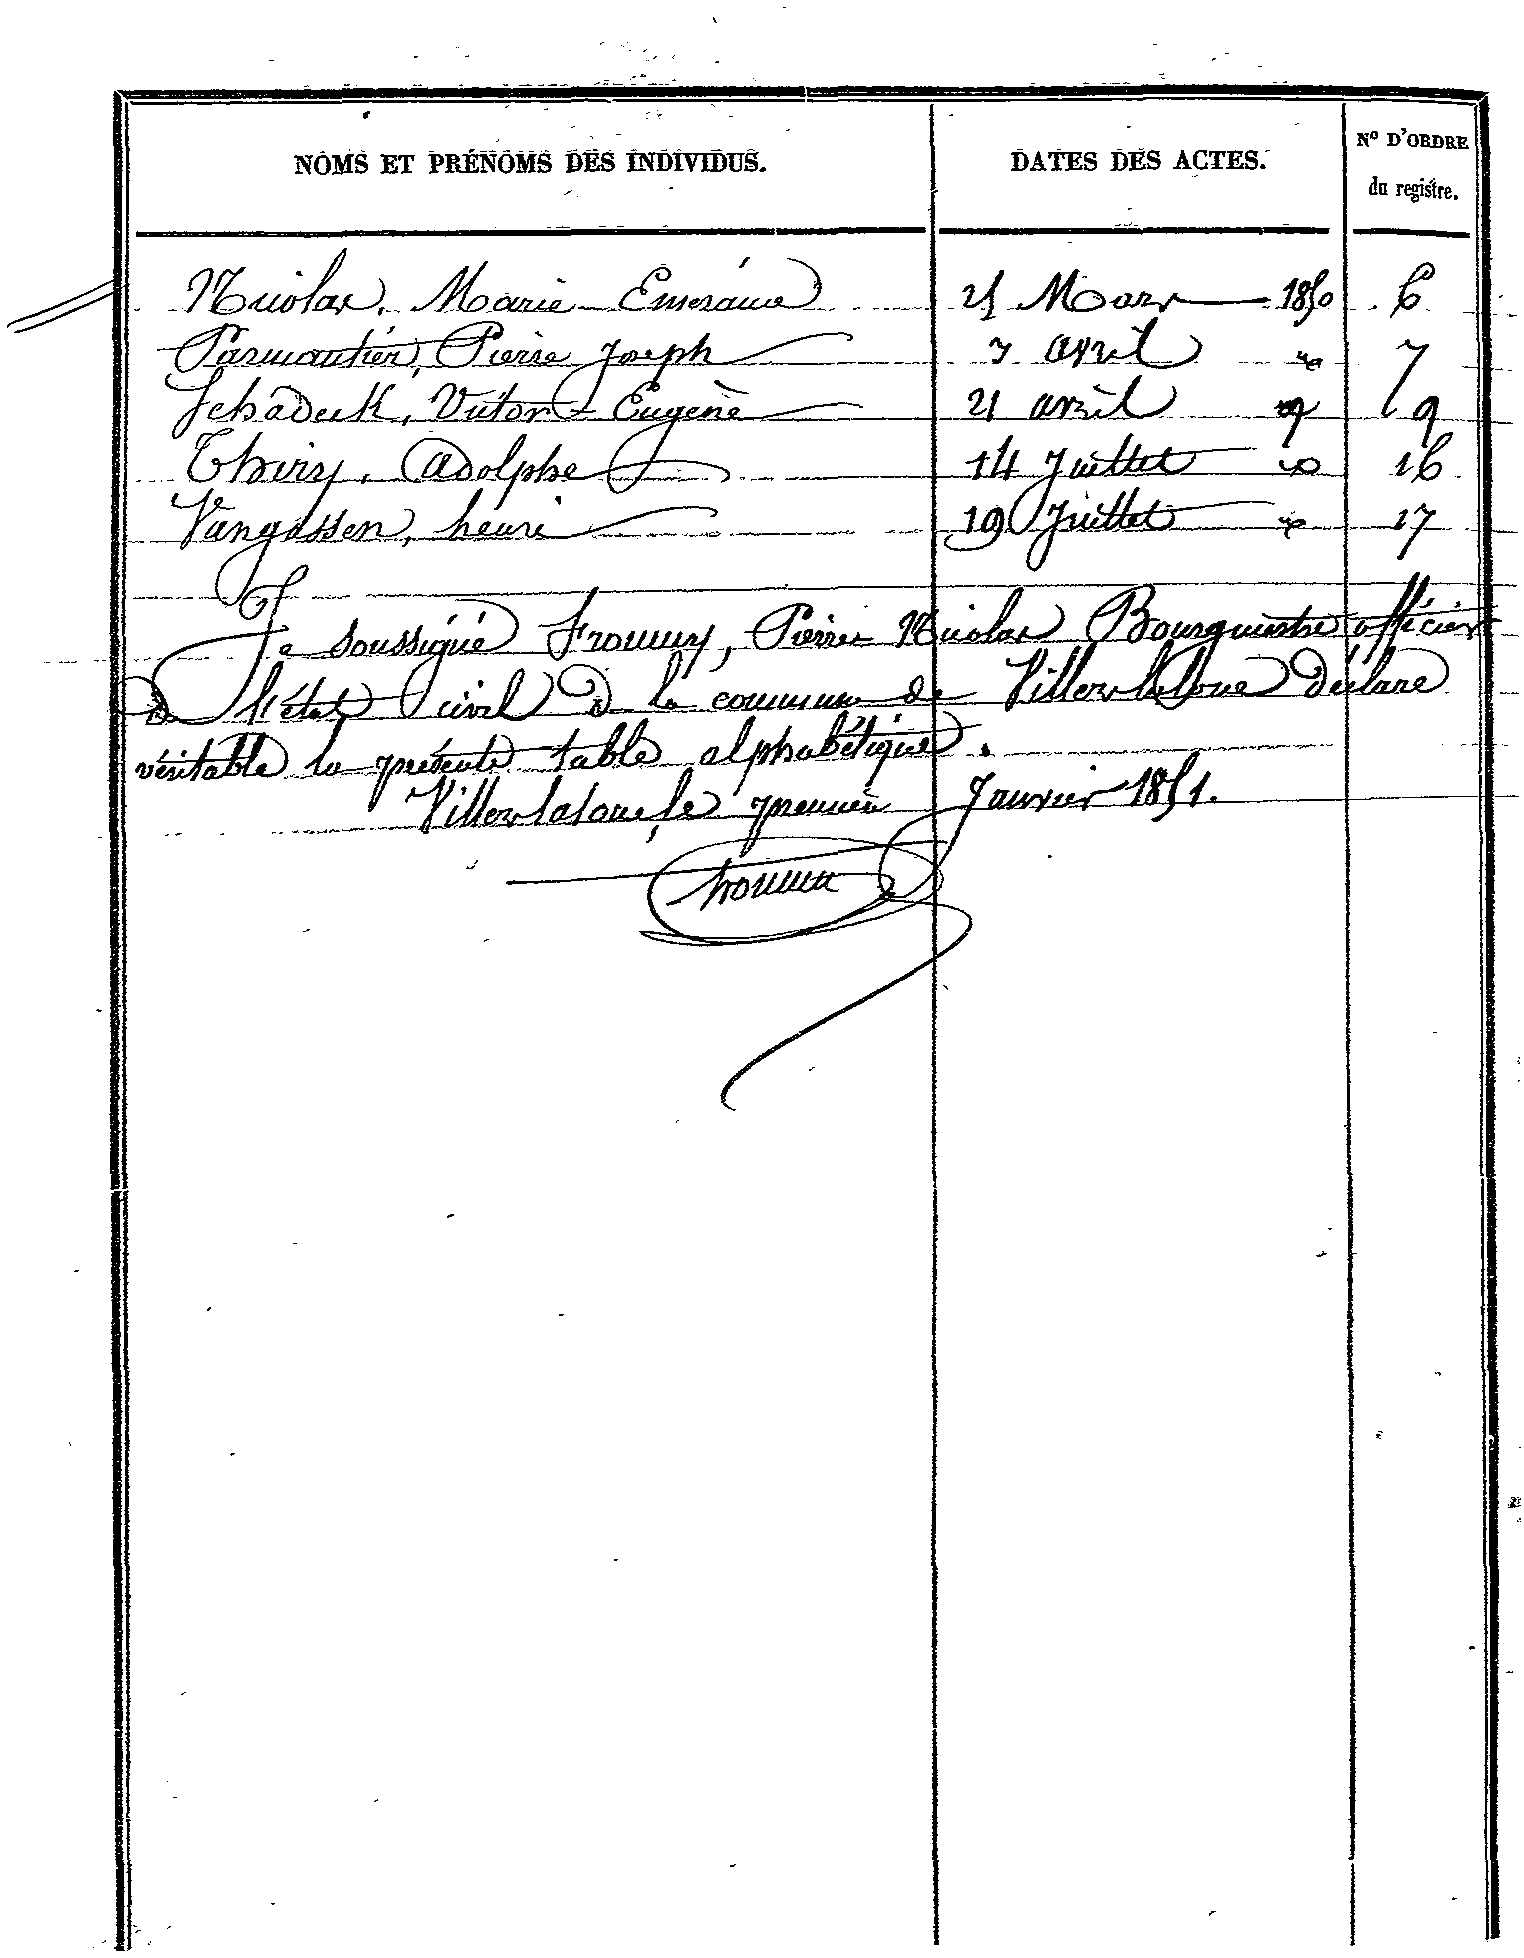 NOMS ET PRÉNOMS DES INDIVIDUS. DATES DES ACTES. N° D'ORDRE du registre.
Nicolas, Marie Emérance 25 Mars 1850 6
Parmantier, Pierre Joseph 7 avril " 7
Schadeck, Victor Eugène 21 avril " 9
Thiry, Adolphe 14 Juillet " 16
Vangassen, henri 19 Juillet " 17
Je soussigné Fromuy, Pierre Nicolas Bourgmestre officier
de l'état civil de la commune de Villers laloue déclare
véritable la présente table alphabétique.
Villers laloue, le premier Janvier 1851.